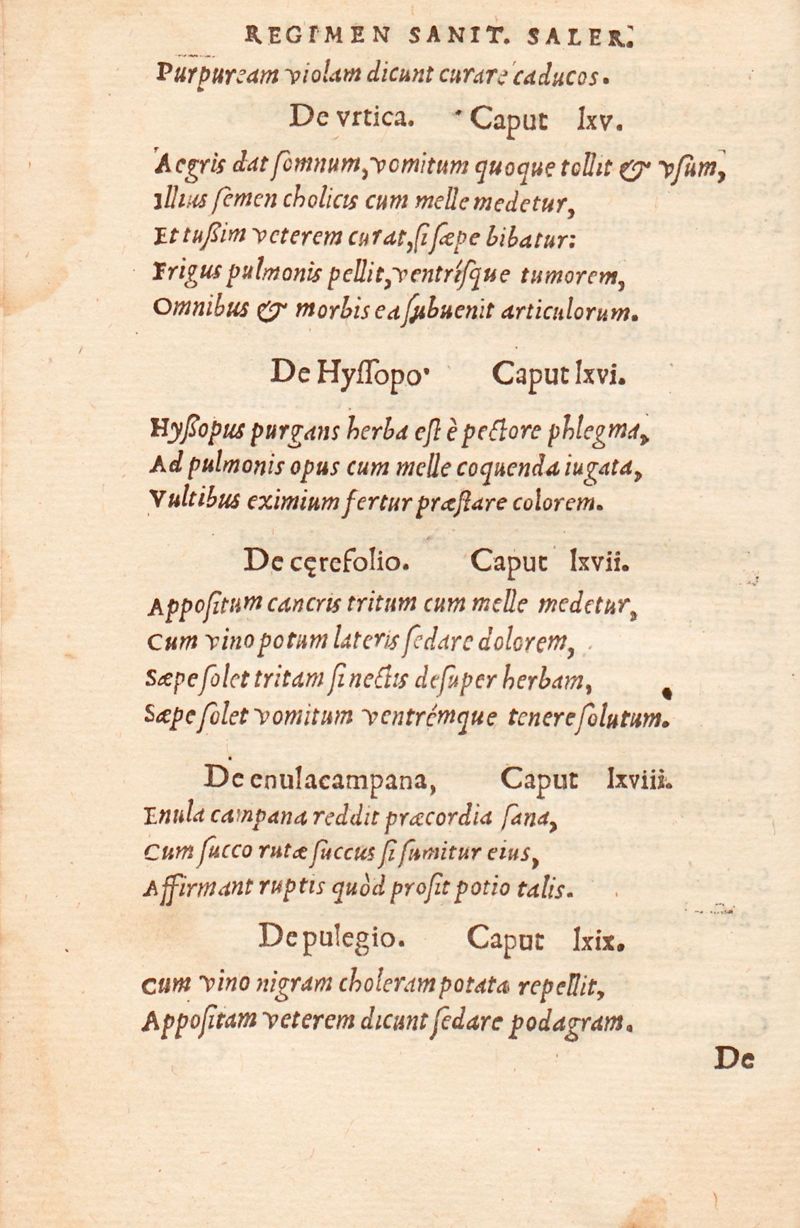 REGIMEN SANIT. SALER.
Purpuream violam dicunt curare caducos.
De vrtica. Caput lxv.
Aegris dat somnum, vomitum quoque tollit & vsum,
Illius semen cholicis cum melle medetur,
Et tußim veterem curat, si sæpe bibatur:
Frigus pulmonis pellit, ventrísque tumorem,
Omnibus & morbis ea subuenit articulorum.
De Hyssopo. Caput lxvi.
Hyßopus purgans herba est è pectore phlegma,
Ad pulmonis opus cum melle coquenda iugata,
Vultibus eximium fertur præstare colorem.
De cęrefolio. Caput lxvii.
Appositum cancris tritum cum melle medetur,
Cum vino potum lateris sedare dolorem,
Sæpe solet tritam si nectis desuper herbam,
Sæpe solet vomitum ventrémque tenere solutum.
De enulacampana, Caput lxviii.
Enula campana reddit præcordia sana,
Cum succo rutæ succus si sumitur eius,
Affirmant ruptis quòd prosit potio talis.
De pulegio. Caput lxix.
Cum vino nigram choleram potata repellit,
Appositam veterem dicunt sedare podagram.
De